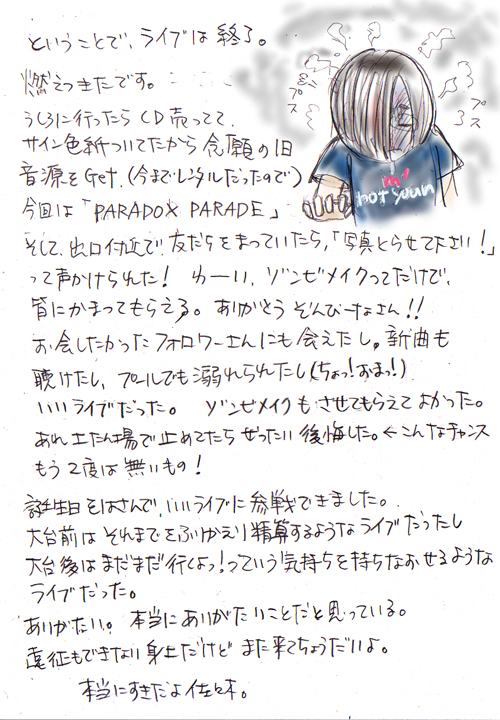 ということで、ライブは終了。
燃えつきたです。
プス
プス
うしろに行ったらCD売ってて、
サイン色紙ついてたから念願の旧
音源をGet、(今までレンタルだったので)
今回は「PARADOX PARADE」
I'm
not Suun
そして、出口付近で、友だちをまっていたら、「写真とらせて下さい!」
って声かけられた! わーい、ゾンゼメイクってだけで、
皆にかまってもらえる。ありがとうぞんびーなさん!!
お会したかったフォロワーさんにも会えたし。新曲も
聴けたし、プールでも溺れられたし(ちょっ!おま!)
いいライブだった。 ゾンゼメイクもさせてもらえてよかった。
あれ土たん場で止めてたらぜったい後悔した。←こんなチャンス
もう2度は無いもの!
誕生日をはさんで、いいライブに参戦できました。
大台前はそれまでをふりかえり精算するようなライブだったし
大台後はまだまだ行くよっ!っていう気持ちを持ちなおせるような
ライブだった。
ありがたい。本当にありがたいことだと思っている。
遠征もできない身上だけど また来てちょうだいよ。
本当にすきだよ佐々木。